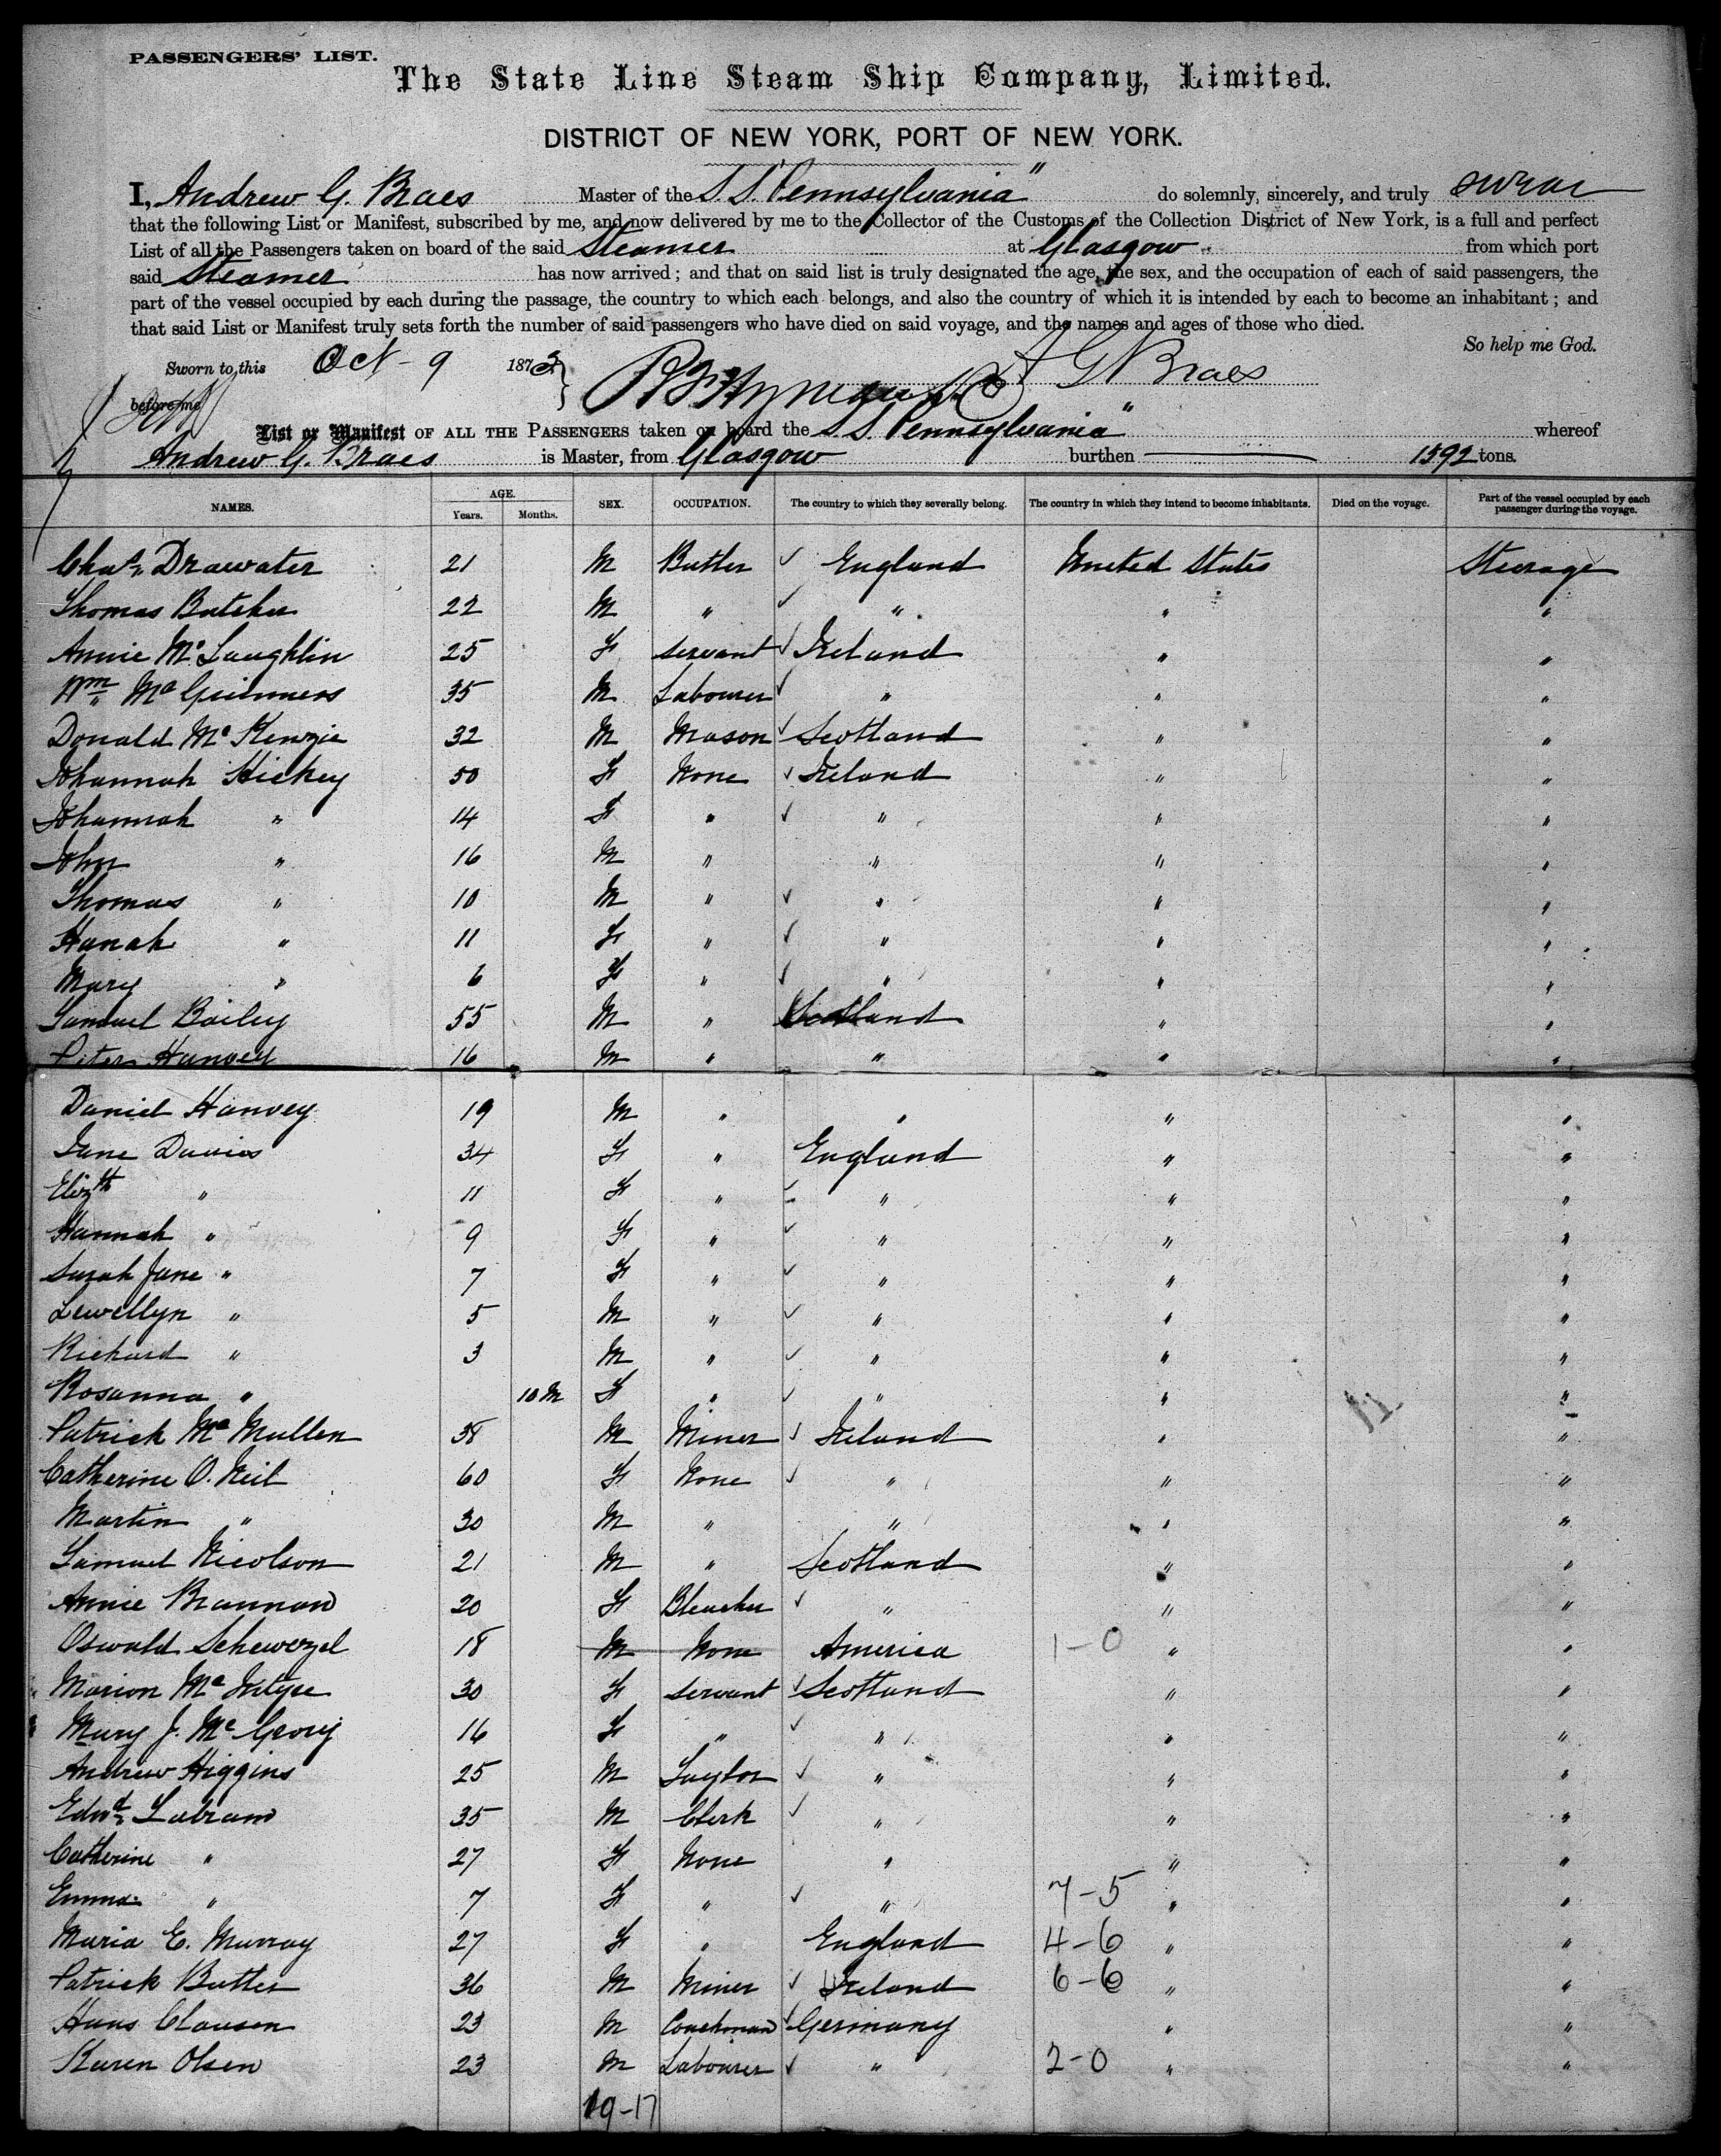 PASSENGERS' LIST.
The State Line Steam Ship Company, Limited.
DISTRICT OF NEW YORK, PORT OF NEW YORK.
I, Andrew G. Braes Master of the S.S. "Pennsylvania" do solemnly, sincerely, and truly swear
that the following List or Manifest, subscribed by me, and now delivered by me to the Collector of the Customs of the Collection District of New York, is a full and perfect
List of all the Passengers taken on board of the said Steamer at Glasgow from which port
said Steamer has now arrived; and that on said list is truly designated the age, the sex, and the occupation of each of said passengers, the
part of the vessel occupied by each during the passage, the country to which each belongs, and also the country of which it is intended by each to become an inhabitant; and
that said List or Manifest truly sets forth the number of said passengers who have died on said voyage, and the names and ages of those who died.
So help me God.
Sworn to this Oct 9 1873 A G Braes
before me
List or Manifest OF ALL THE PASSENGERS taken on board the S.S. Pennsylvania" whereof
Andrew G. Braes is Master, from Glasgow burthen 1592 tons.
NAMES. AGE. Years. Months. SEX. OCCUPATION. The country to which they severally belong. The country in which they intend to become inhabitants. Died on the voyage. Part of the vessel occupied by each passenger during the voyage.
Chas. Drawater 21 M Butler ✓ England United States Steerage
Thomas Butcher 22 M " ✓ " " "
Annie Mc Laughlin 25 F Servant ✓ Ireland " "
Wm Mc Guinness 35 M Labourer ✓ " " "
Donald Mc Kenzie 32 M Mason ✓ Scotland " "
Johannah Hickey 50 F None ✓ Ireland " "
Johannah " 14 F " ✓ " " "
John " 16 M " " " "
Thomas " 10 M " ✓ " " "
Hanah " 11 F " ✓ " " "
Mary " 6 F " ✓ " " "
Samuel Bailey 55 M " Scotland " "
Peter Hanvey 16 M " " " "
Daniel Hanvey 19 M " " " "
Jane Davies 34 F " England " "
Elizth " 11 F " ✓ " " "
Hannah " 9 F " ✓ " " "
Sarah Jane " 7 F " ✓ " " "
Lewellyn " 5 M " ✓ " " "
Richard " 3 M " ✓ " " "
Rosanna " 10 M F " ✓ " " "
Patrick Mc Mullen 38 M Miner ✓ Ireland " "
Catherine O. Neil 60 F None ✓ " " "
Martin " 30 M " " " "
Samuel Nicolson 21 M " Scotland " "
Annie Brannan 20 F Bleacher ✓ " " "
Oswald Schewerzel 18 M None America 1-0 " "
Marion Mc Intyre 30 F Servant ✓ Scotland " "
Mary J. Mc 16 F " ✓ " " "
Andrew Higgins 25 M Taylor ✓ " " "
Edwd. Labram 35 M Clerk ✓ " " "
Catherine " 27 F None " " "
Emma " 7 F " ✓ " 7-5 " "
Maria E. Murray 27 F " England 4-6 " "
Patrick Butler 36 M Miner ✓ Ireland 6-6 " "
Hans Clausen 23 M Coachman ✓ Germany " "
Karen Olsen 23 M Labourer ✓ " 2-0 " "
19-17